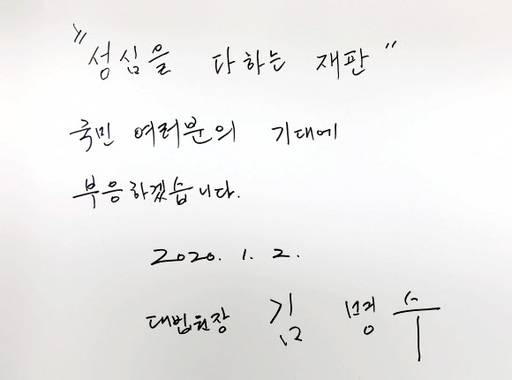 "성심을 다하는 재판"
국민 여러분의 기대에
부응하겠습니다.
2020. 1. 2.
대법원장 김 명 수